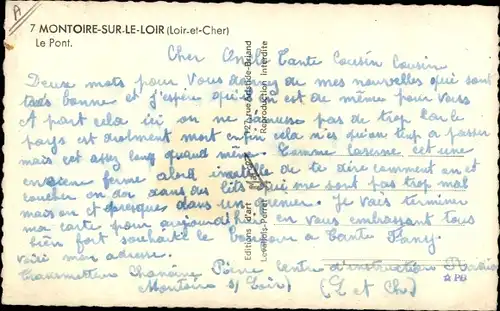 A
7 MONTOIRE-SUR-LE-LOIR (Loir-et-Cher)
Le Pont.
Cher Oncle Tante Cousin Cousin
Deux mots pour vous donner de mes nouvelles qui sont
très bonne et j'espère qu'il en est de même pour vous
A part cela ici on ne s'amuse pas de trop car le
pays est drolment mort enfin cela n'es qu'un trop a passer
mais cet assez long quand même. Comme caserne cet une
ancienne ferme alors inutille de te dire comment on et
coucher on dor dans des lits qui ne sont pas trop mal
mais on et presques dans un grenier. Je vais terminer
ma carte pour aujourd'hui en vous embrassant tous
bien fort souhaite le bonjour a Tante Fany.
voici mon adresse.
Transmetteur Pierre Centre d'instruction
Montoire s/ Loir (L et Ch)
Editions d'art
Levallois-Perret
127, rue Aristide-Briand
Reproduction Interdite